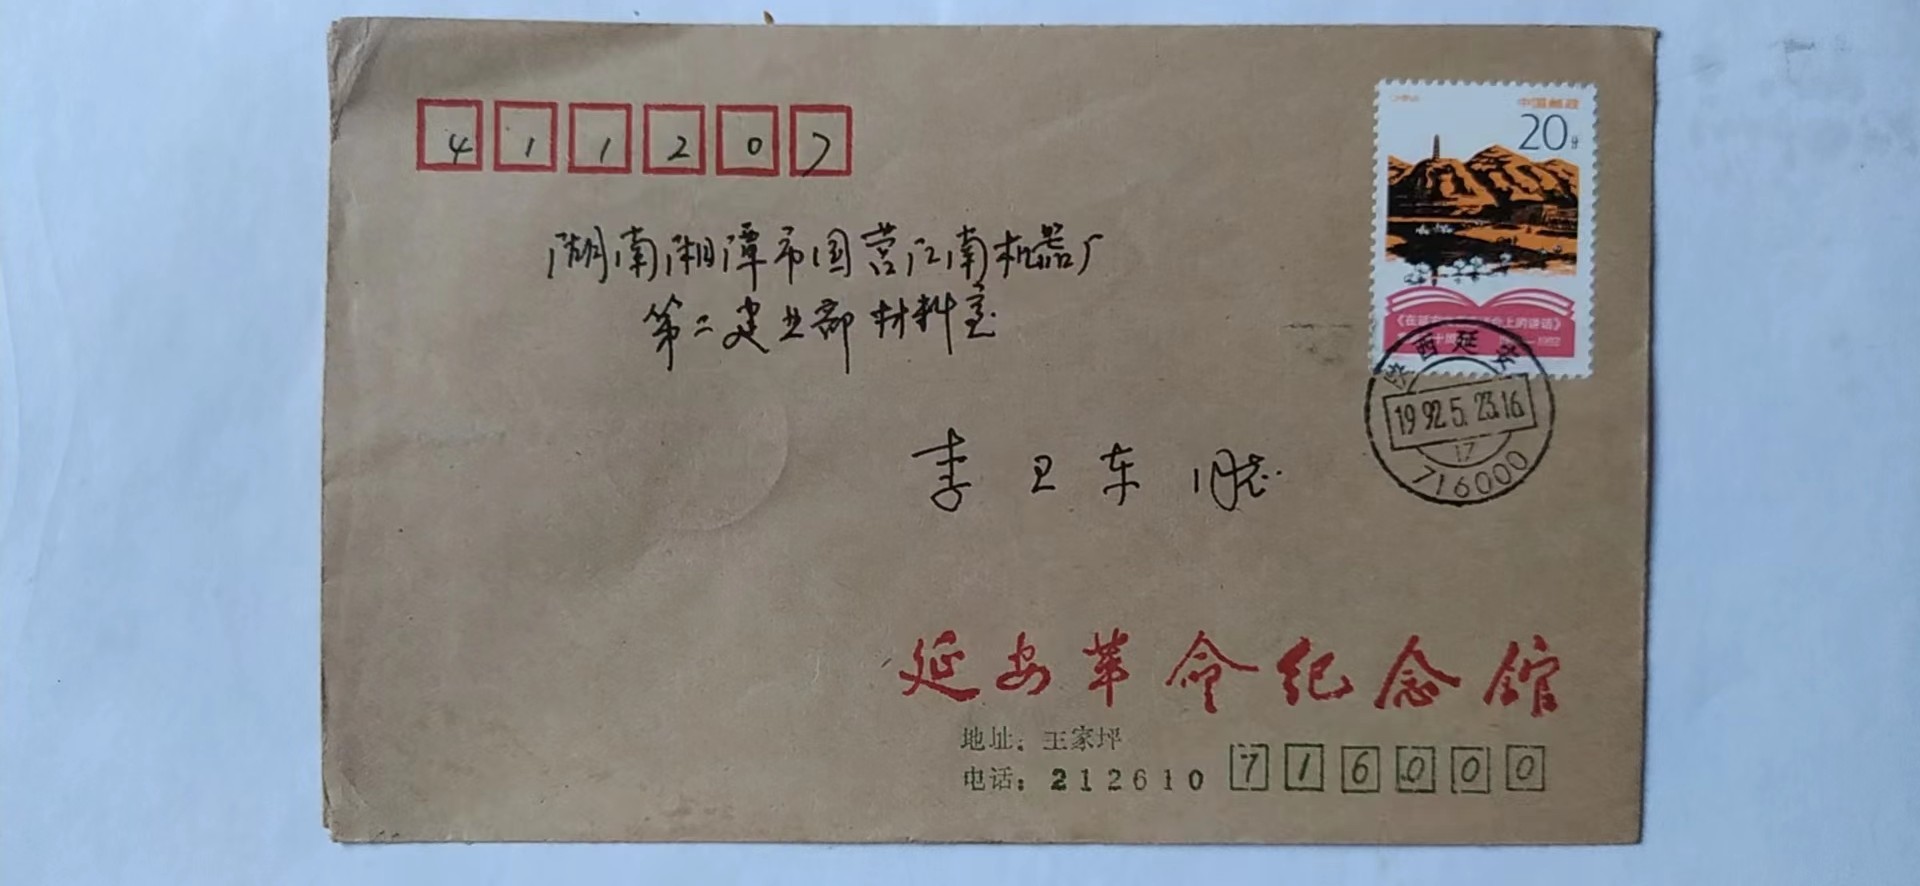 411207
湖南湘潭市国营江南机器厂
第二建业部材料室
李卫东 同志
中国邮政
20分
《在延安 会上的讲话》
十周 1992
陕西延安
1992.5.23.16
17
716000
延安革命纪念馆
地址：王家坪
电话：212610 716000